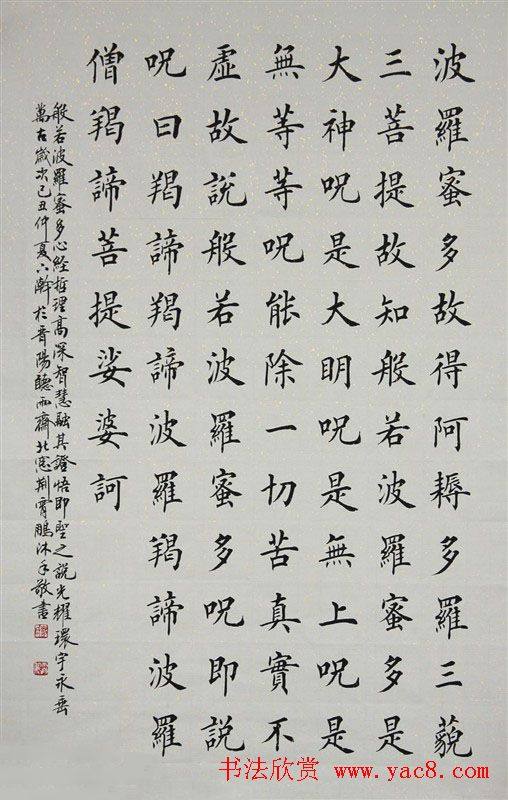 波羅蜜多故得阿耨多羅三藐
三菩提故知般若波羅蜜多是
大神呪是大明呪是無上呪是
無等等呪能除一切苦真實不
虛故說般若波羅蜜多呪即說
呪曰羯諦羯諦波羅羯諦波羅
僧羯諦菩提娑婆訶
般若波羅蜜多心经哲理高深智慧融其證悟即聖之說光耀環宇永垂
萬古歲次己丑仲夏於晋陽聽雨齋北窓荆霄鵬沐手敬書
书法欣赏 www.yac8.com